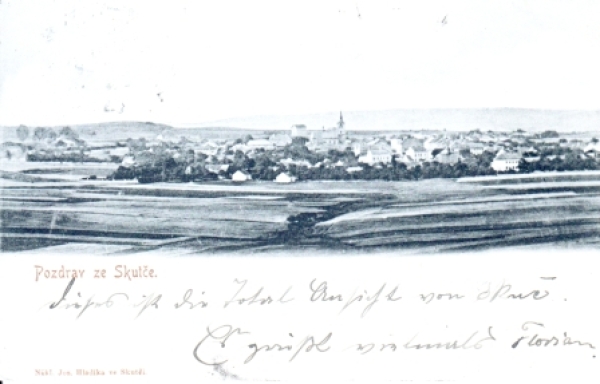 Pozdrav ze Skutče.
dieses ist die Total Ansicht von Skuč.
Es grüßt vielmals Florian
Nákl. Jos. Hladíka ve Skutči.